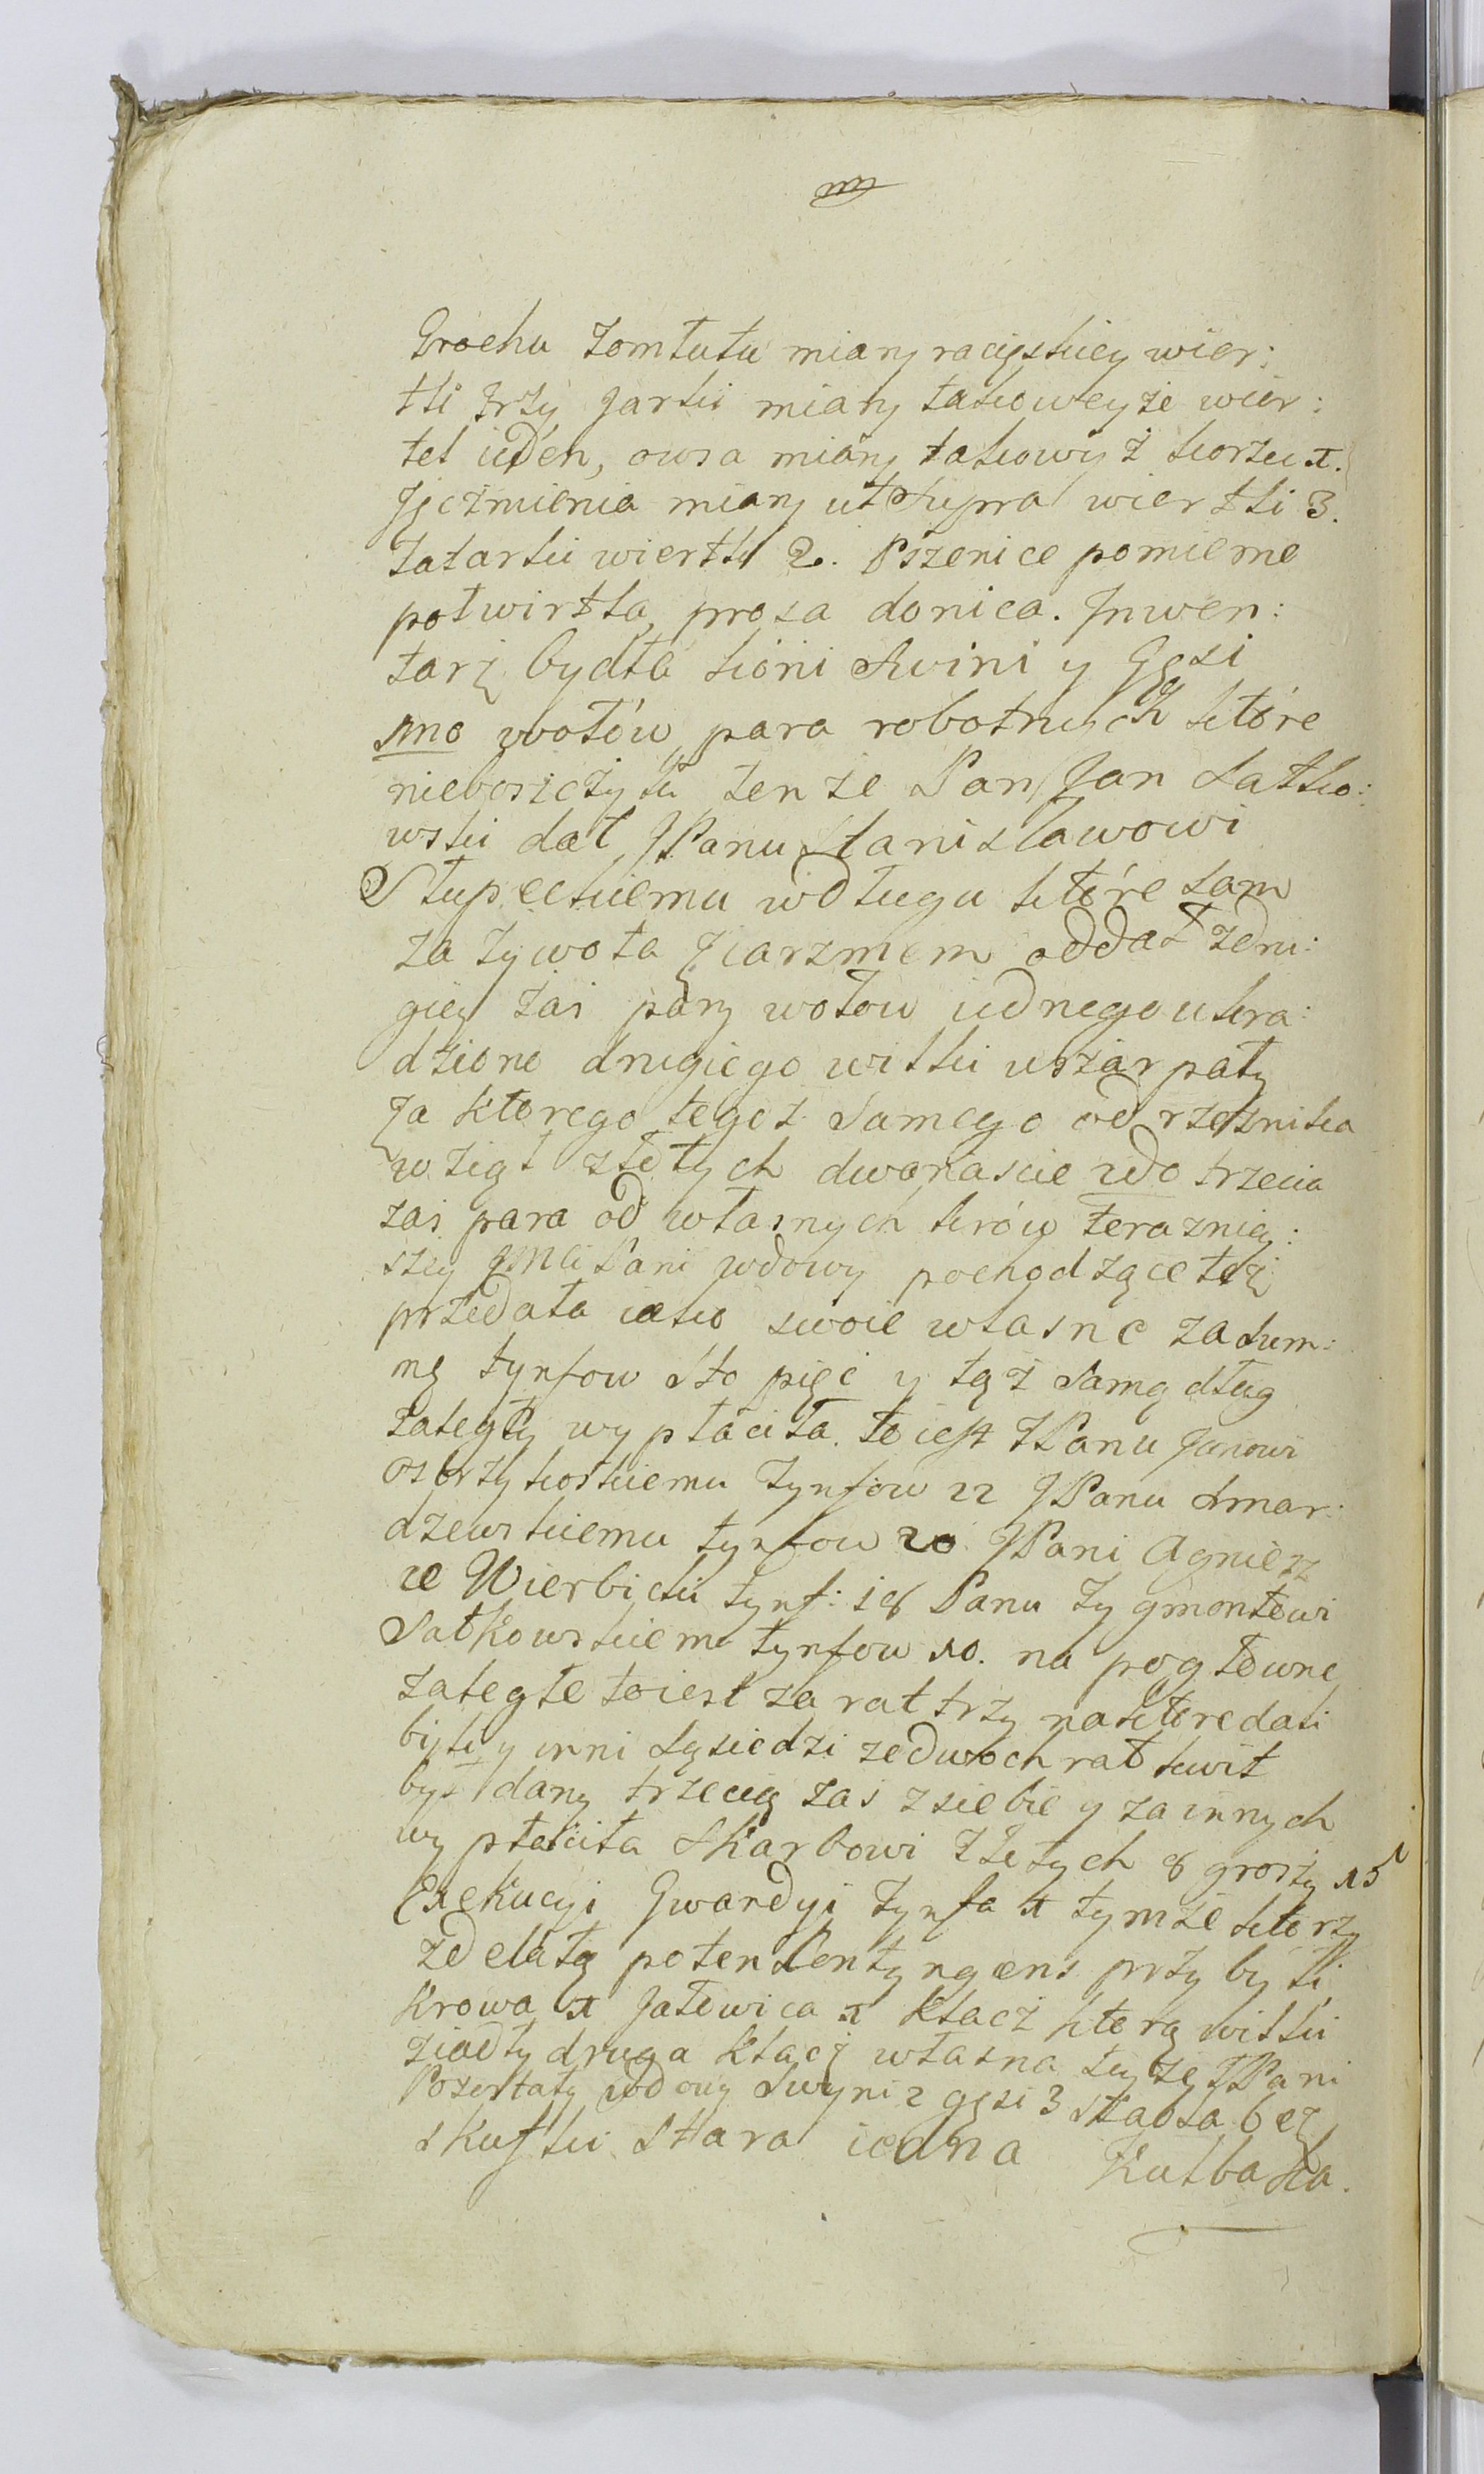 Grochu zomłutu miary raciąskiey wier:
tli trży jarki miary takoweyże wier:
tel ieden, owsa miary takowyż korzec 1.
Jęczmienia miary ut supra wiertli 3.
Tatarki wiertli 2. Pszenice pomierne
połwirtla, prosa donica. Jnwen:
tarz bydła koni świni y Gęsi
1mo wołów para robotnych które
nieboszczyk tenże Pan Jan Łatko:
wski dał JPanu Stanisławowi
Słupeckiemu w długu które sam
za żywota z iarzmem oddał zdru:
giey zas pary wołow iednego ukra:
dziono drugiego wilki uszarpały
za ktorego tegoz samego od rzeznika
wziął złotych dwanascie 2do trzecia
zas para od własnych krów terazniey:
szey JMCi Pani wdowy pochodzące też
przedała iako swoie własne za sum:
mę tynfow sto pięc y tąż samą dług
zaległy wypłaciła. to iest JPanu Janowi
tynfow 22 JPanu Smar:
dzewskiemu tynfow 20 JPani Agniesz
ce Wierbicki tynf: 18 Panu Zygmontowi
Satkowskiemu tynfow 10. na pogłowne
zaległe toiest za rat trzy na ktore dali
y inni sąsiedzi ze dwoch rat kwit
był dany trzecią zas z siebie y za innych
wypłaciła Skarbowi Złotych 8 groszy 15
Exekucyi Gwardyi tynfa 1 tymże ktorzy
przybyli
Krowa 1 Jałowica 1 Klacż ktorą wilki
ziadły druga klacz własna teyże JPani
Pozostały wdowy Swyni 2 gęsi 3 bez
stara iedna Kulbaka.